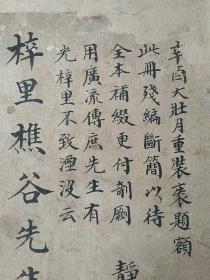 辛酉大壯月重裝裹題額
此冊殘編斷簡以待
全本補綴更付剞劂
用廣流傳庶先生有
光梓里不致湮沒云
梓里樵谷先生